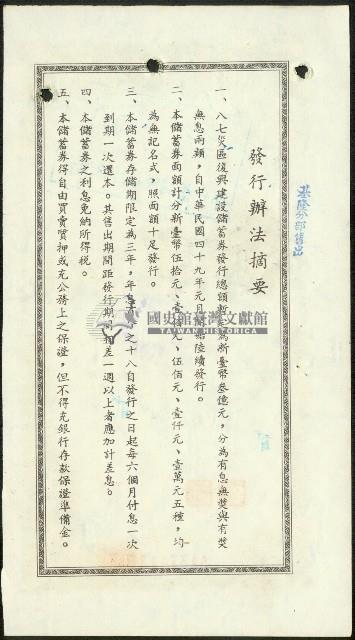 發行辦法摘要
一、八七災區復興建設儲蓄券發行總額暫定為新臺幣叁億元，分為有息無獎與有獎
無息兩類，自中華民國四十九年元月開始陸續發行。
二、本儲蓄券面額計分新臺幣伍拾元、壹佰元、伍佰元、壹仟元、壹萬元五種，均
為無記名式，照面額十足發行。
三、本儲蓄券存儲期限定為三年，年息百分之十八自發行之日起每六個月付息一次
到期一次還本。其售出期間距發行期間相差一週以上者應加計差息。
四、本儲蓄券之利息免納所得稅。
五、本儲蓄券得自由買賣質押或充公務上之保證，但不得充銀行存款保證準備金。
基隆分部售出
國史館臺灣文獻館
TAIWAN HISTORICA